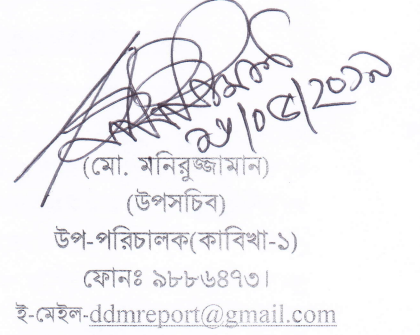 (মো. মনিরুজ্জামান)
(উপসচিব)
উপ-পরিচালক(কাবিখা-১)
ফোনঃ ৯৮৮৬৪৭৩।
ই-মেইল-ddmreport@gmail.com